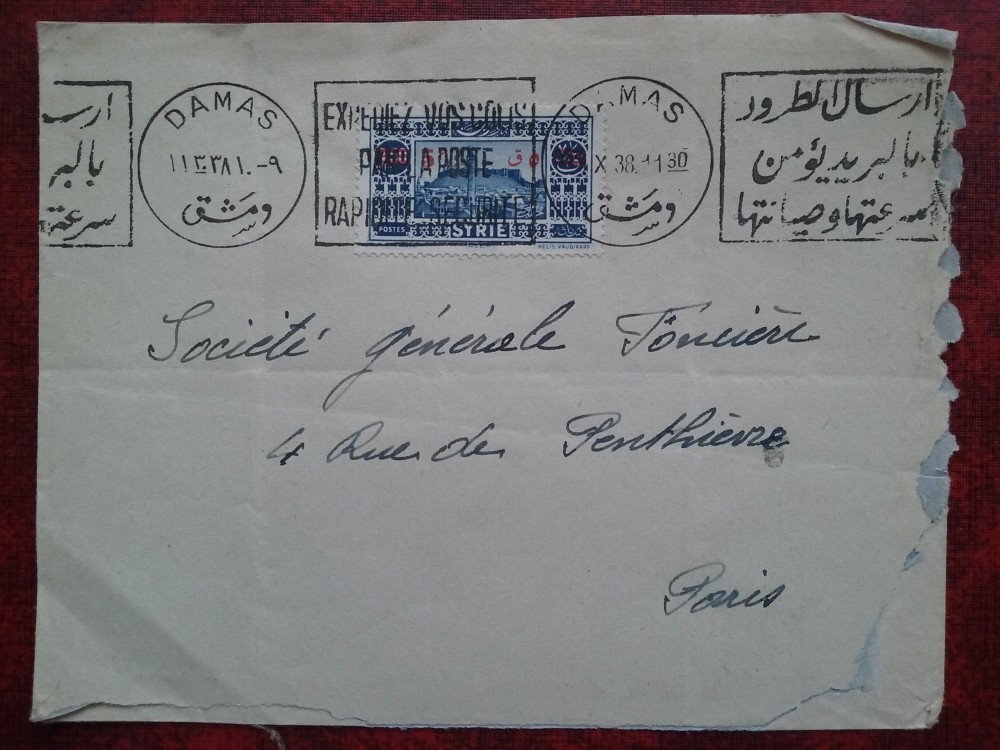 ارسال الطرود
بالبريد يؤمن
سرعتها وصيانتها
DAMAS
دمشق
EXPEDIEZ VOS COLIS
PAR LA POSTE
RAPIDITE SECURITE
DAMAS
X 38.11 30
دمشق
ارسال الطرود
بالبريد يؤمن
سرعتها وصيانتها
5
٥ ق
POSTES
SYRIE
HELIO VAUGIRARD
Société générale Foncière
4 Rue de Penthièvre
Paris